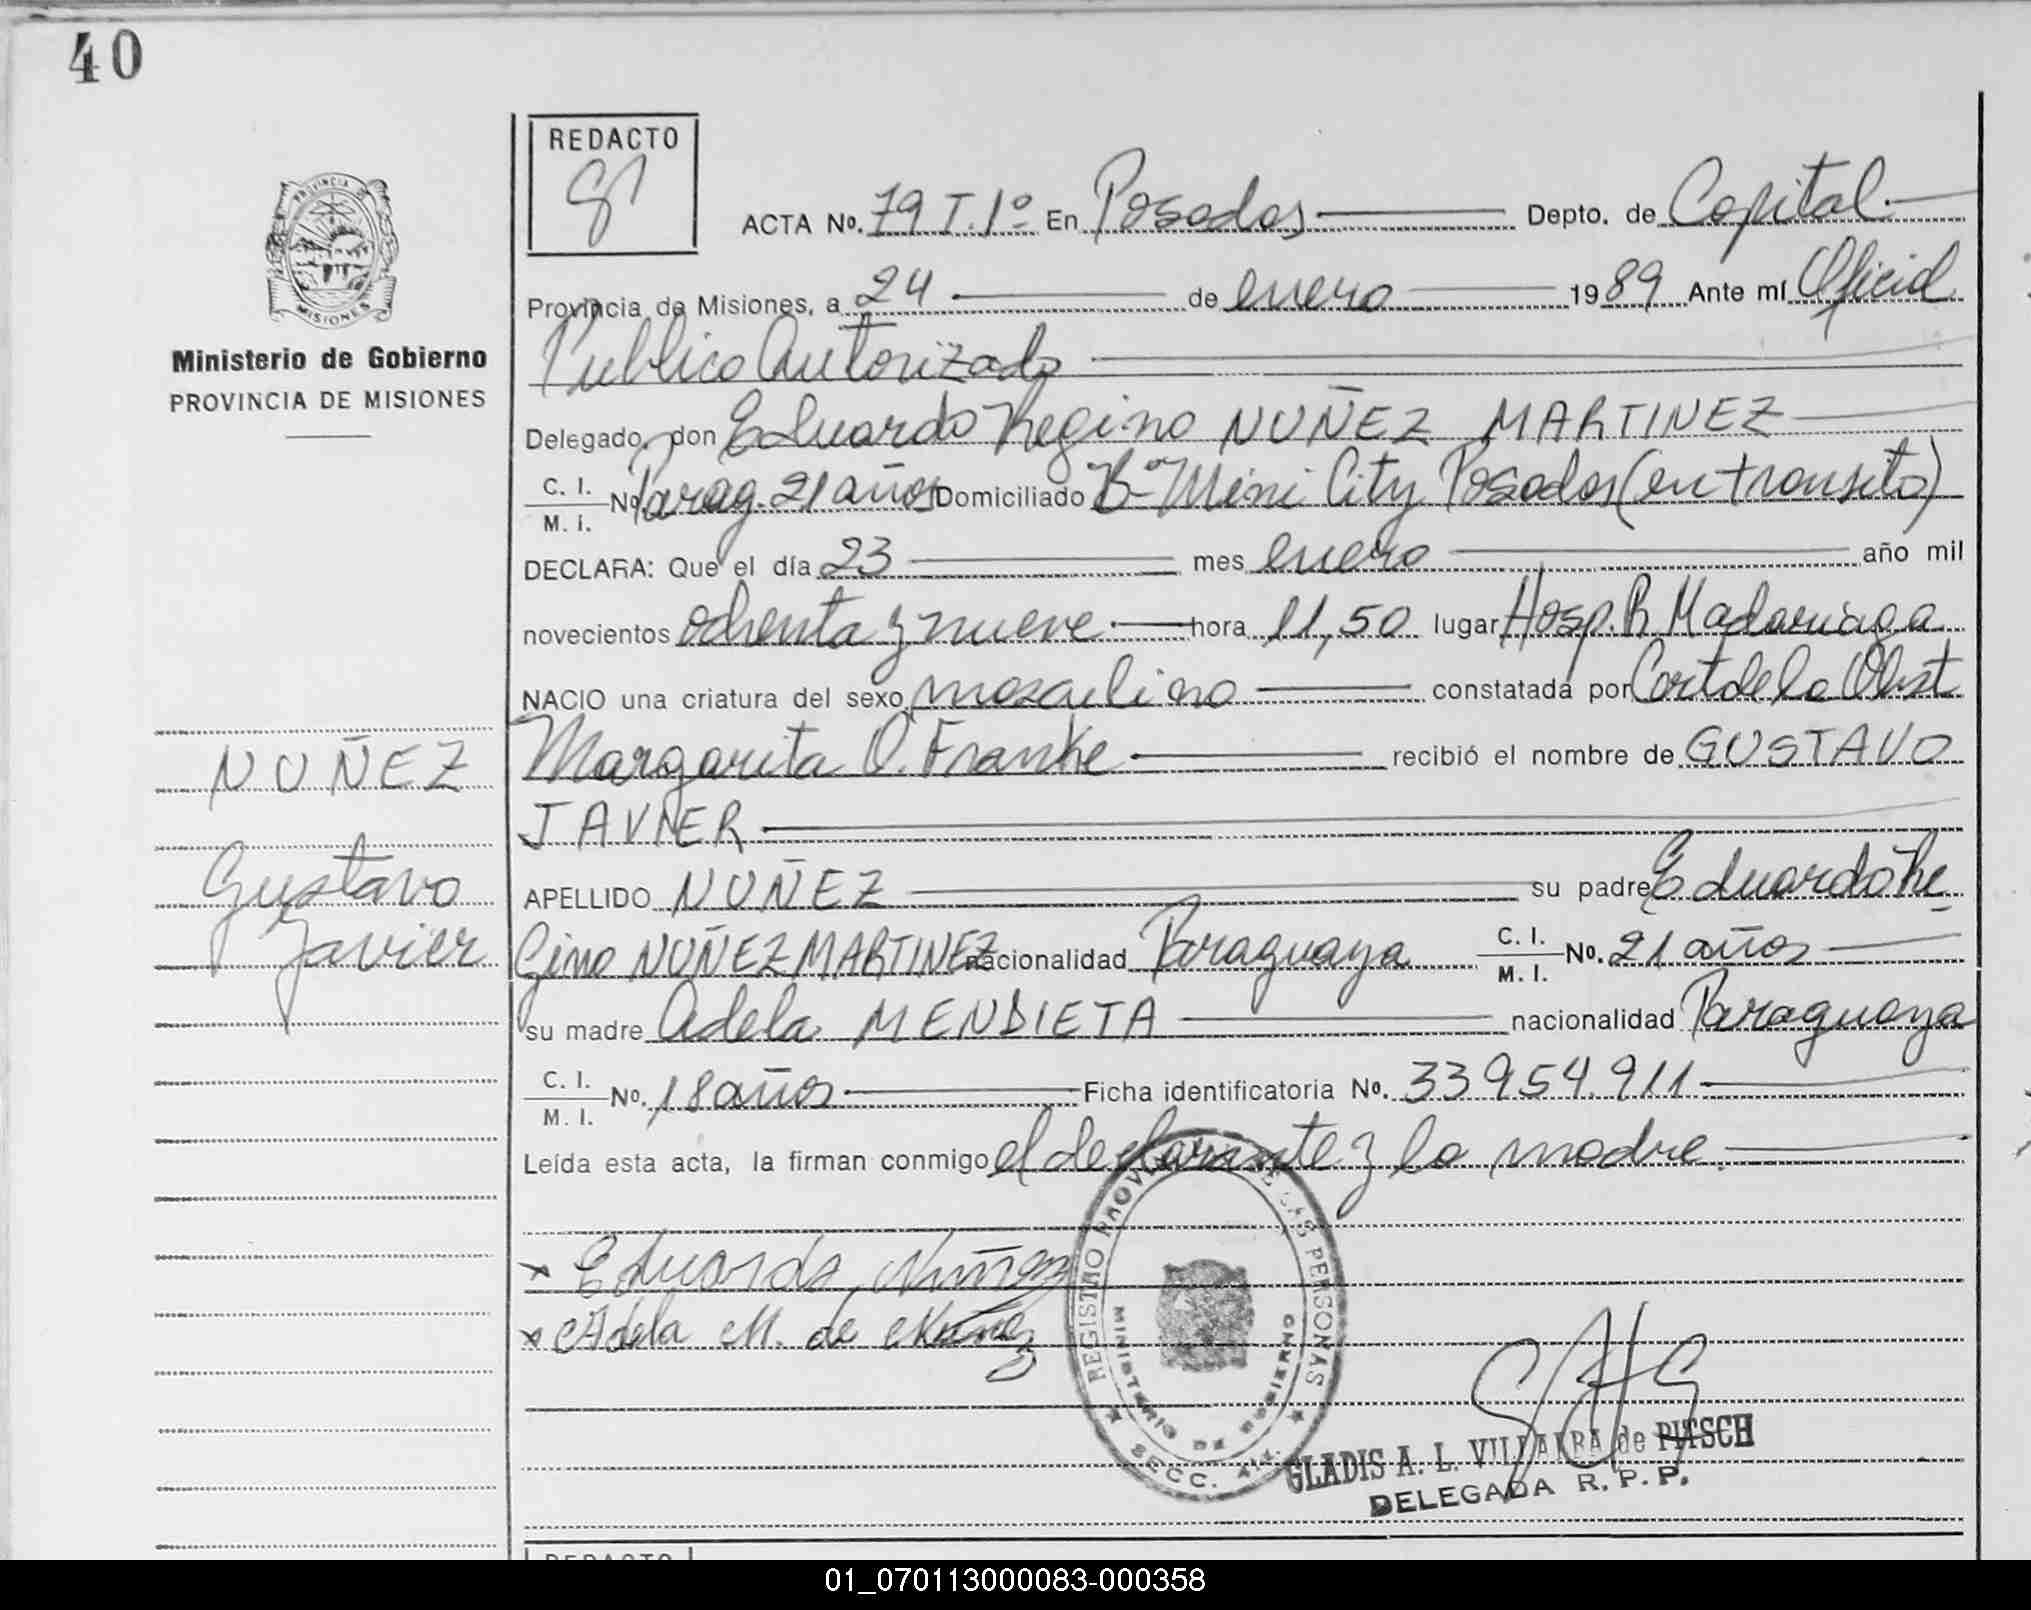 40
REDACTO
PROVINCIA DE
MISIONES
Ministerio de Gobierno
PROVINCIA DE MISIONES
ACTA No. 79 T. 1º En Posadas Depto. de Capital
Provincia de Misiones, a 24 de enero 1989 Ante mí Oficial
Publico Autorizado
Delegado, don Eduardo Regino NUÑEZ MARTINEZ
C. I. M. I. No. Parag. 21 años Domiciliado Bº Mini City Posadas (en transito)
DECLARA: Que el día 23 mes enero año mil
novecientos ochenta y nueve hora 11,50 lugar Hosp. R. Madariaga
NACIO una criatura del sexo masculino constatada por Cert de la Obst
NUÑEZ
Margarita O. Franke recibió el nombre de GUSTAVO
JAVIER
Gustavo
Javier
APELLIDO NUÑEZ su padre Eduardo Re
gino NUÑEZ MARTINEZ nacionalidad Paraguaya C. I. M. I. No. 21 años
su madre Adela MENDIETA nacionalidad Paraguaya
C. I. M. I. No. 18 años Ficha identificatoria No. 33954.911
Leída esta acta, la firman conmigo el declarante y la madre.
x Eduardo Nuñez
x Adela M. de Nuñez
REGISTRO PROVINCIAL DE LAS PERSONAS
MINISTERIO DE GOBIERNO
SECC.
GLADIS A. L. VILLALBA de PITSCH
DELEGADA R. P. P.
REDACTO
01_070113000083-000358